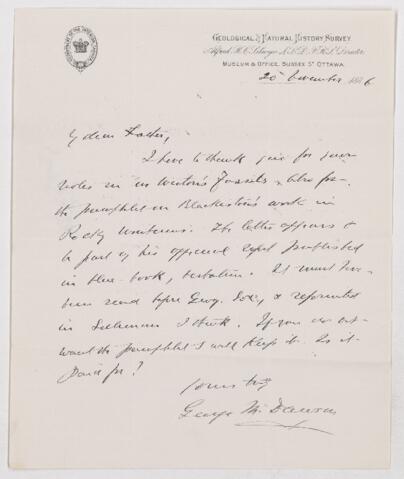 GEOLOGICAL & NATURAL HISTORY SURVEY
Alfred R. C. Selwyn L.L.D. F.R.S. Director
MUSEUM & OFFICE, SUSSEX ST OTTAWA.
20 December 1886
My dear Father,
I have to thank you for your
notes in re Weston's Fossils & also for
the pamphlet on Blackiston's work in
Rocky Mountains. The latter appears to
be part of his official report published
in blue-book, verbatim. It must have
been read before Geog. Soc, & reprinted
in I think. If you do not
want the pamphlet I will keep it. Is it
paid for?
Yours truly
George M. Dawson